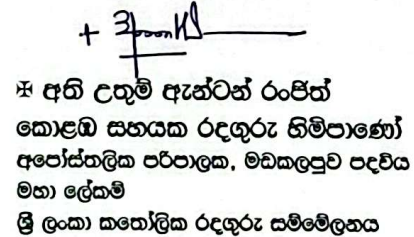 ✠ අති උතුම් ඇන්ටන් රංජිත්
කොළඹ සහයක රදගුරු හිමිපාණෝ
අපෝස්තලික පරිපාලක, මඩකලපුව පදවිය
මහා ලේකම්
ශ්‍රී ලංකා කතෝලික රදගුරු සම්මේලනය